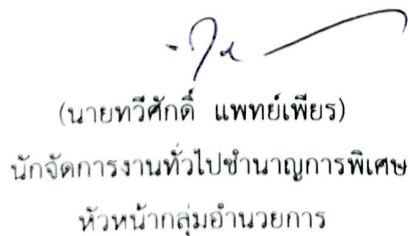 (นายทวีศักดิ์ แพทย์เพียร)
นักจัดการงานทั่วไปชำนาญการพิเศษ
หัวหน้ากลุ่มอำนวยการ